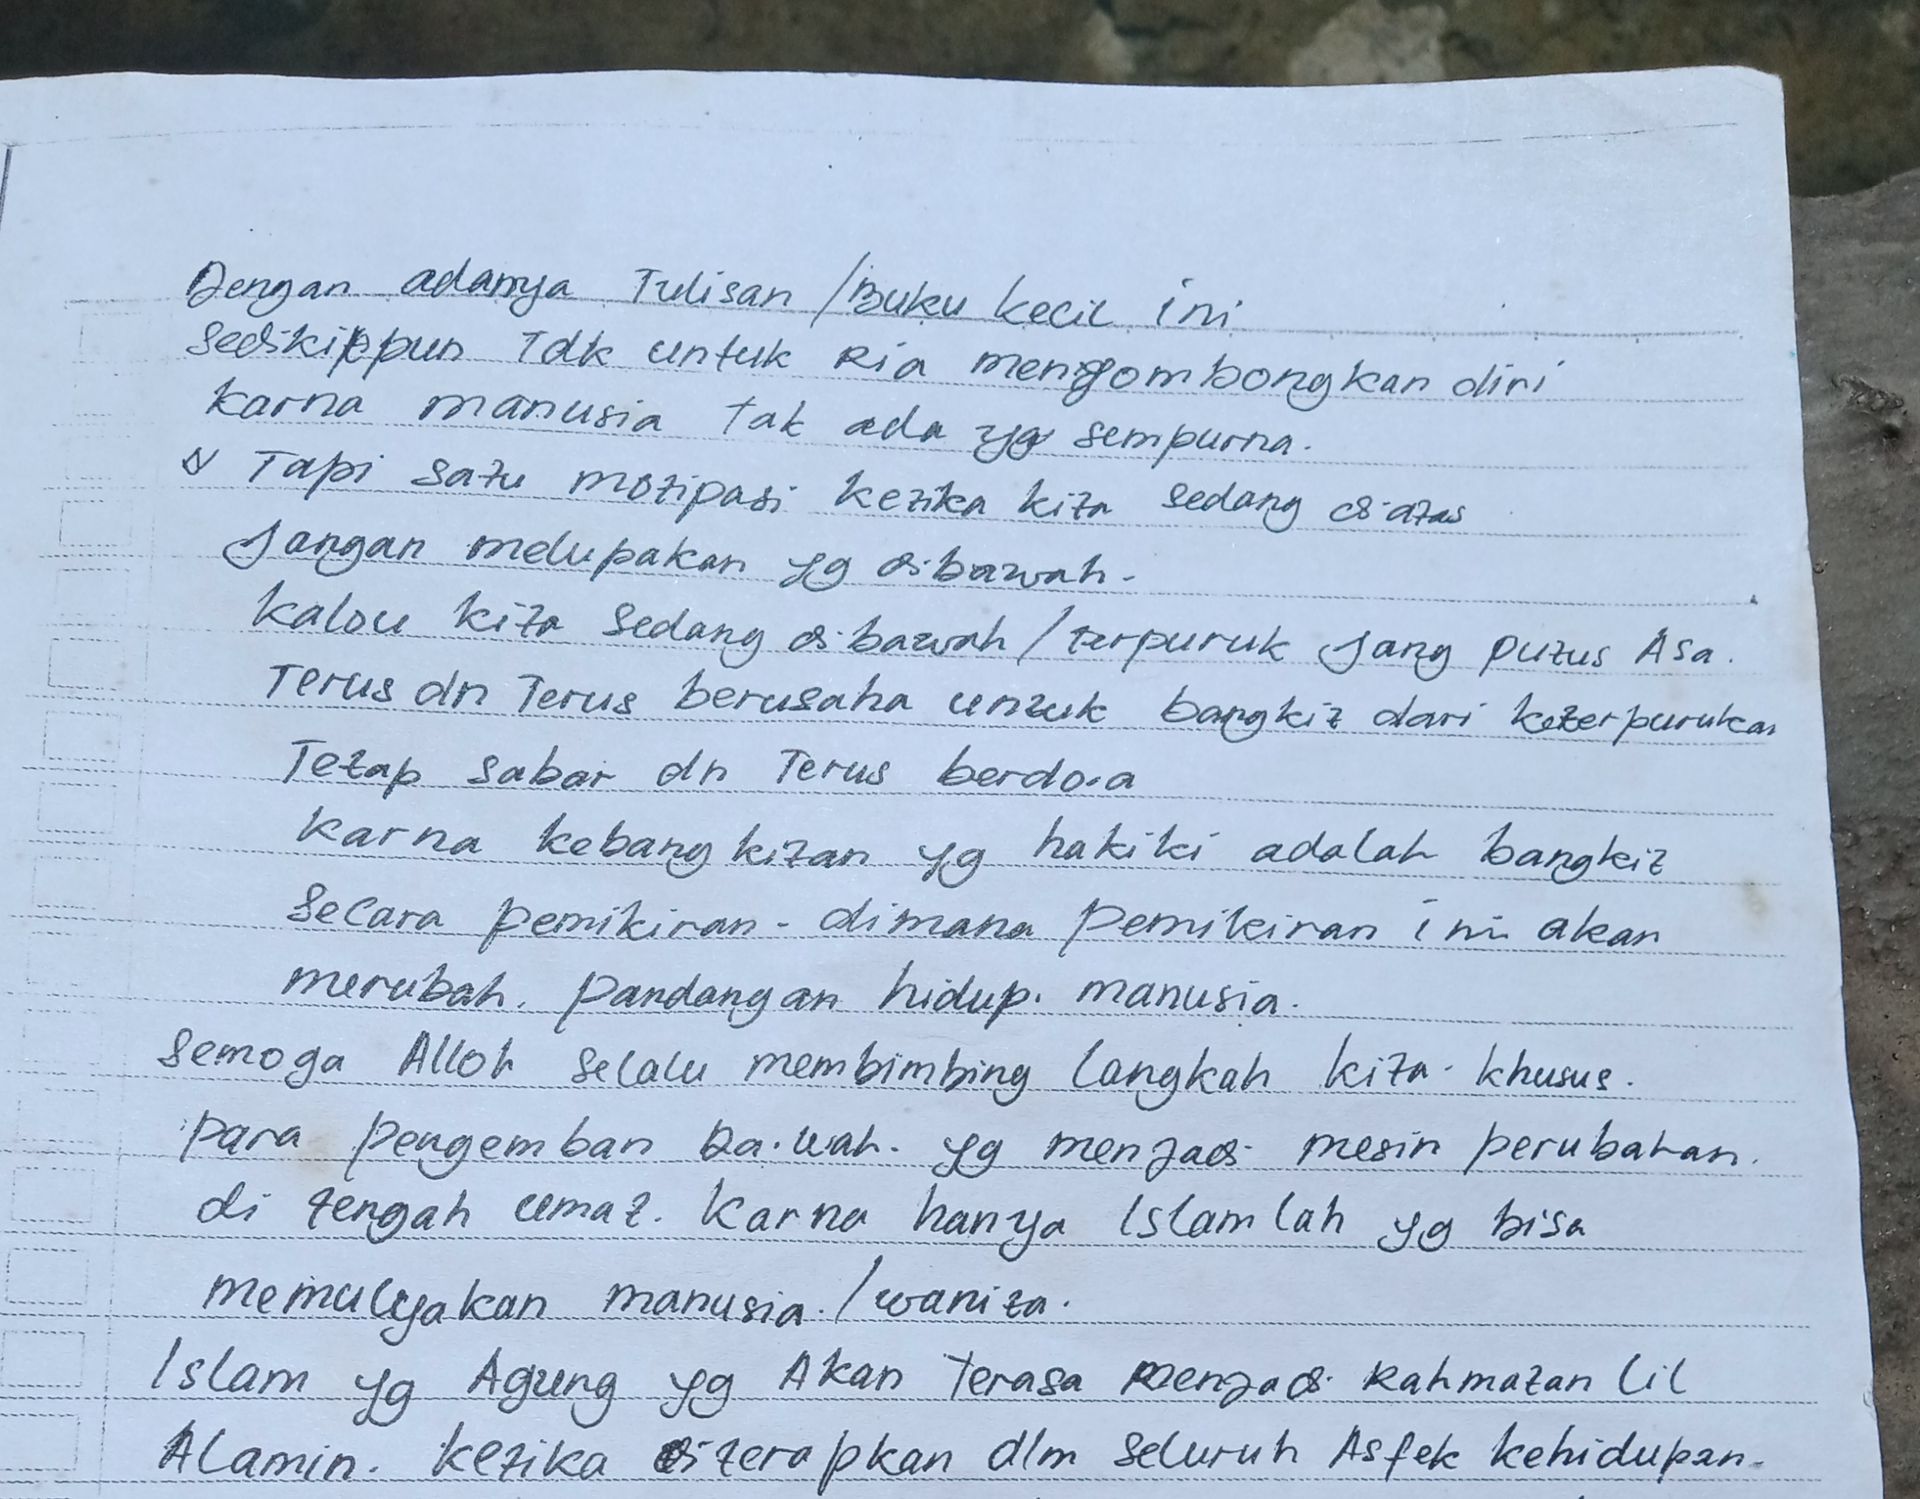 Dengan adanya Tulisan / Buku kecil ini
sedikitpun Tdk untuk Ria menyombongkan diri
karna manusia tak ada yg sempurna.
Tapi satu motipasi ketika kita sedang diatas
Jangan melupakan yg dibawah.
kalou kita sedang dibawah / terpuruk Jang putus Asa.
Terus dn Terus berusaha untuk bangkit dari keterpurukan
Tetap sabar dn Terus berdo.a
karna kebangkitan yg hakiki adalah bangkit
secara pemikiran - dimana pemikiran ini akan
merubah. pandangan hidup. manusia.
semoga Alloh selalu membimbing langkah kita. khusus.
para pengemban Da.wah. yg menjadi mesin perubahan.
di tengah umat. karna hanya Islamlah yg bisa
memulyakan manusia. / wanita.
Islam yg Agung yg Akan Terasa menjadi Rahmatan lil
Alamin. ketika diterapkan dlm seluruh Asfek kehidupan.